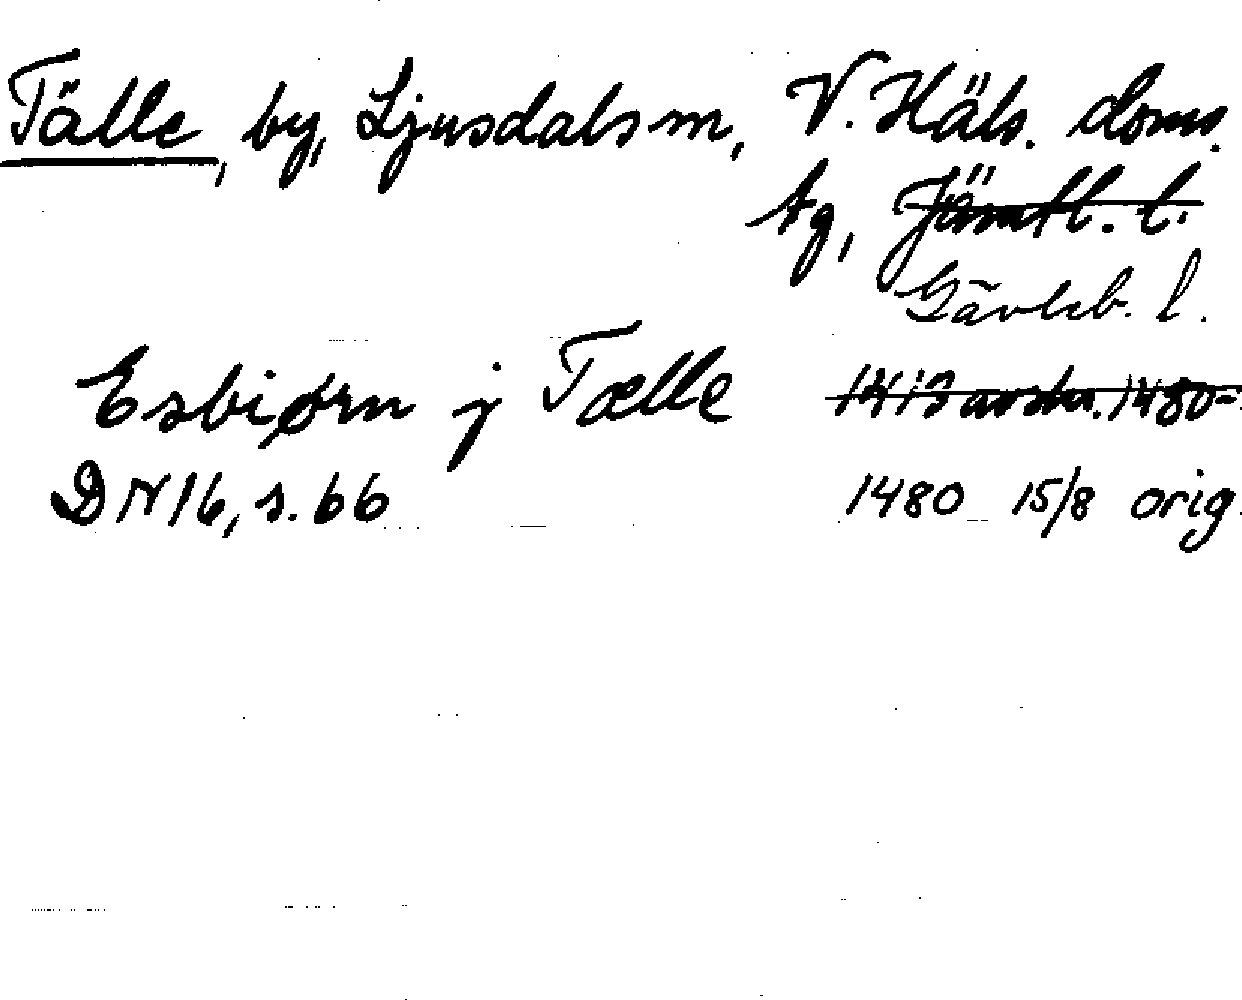 Tälle, by, Ljusdals sn, V. Häls. doms.
tg, Jämtl. l.
Gävleb. l.
Esbiørn j Tælle 1413 avskr. 1480-
DN 16, s. 66 1480 15/8 orig